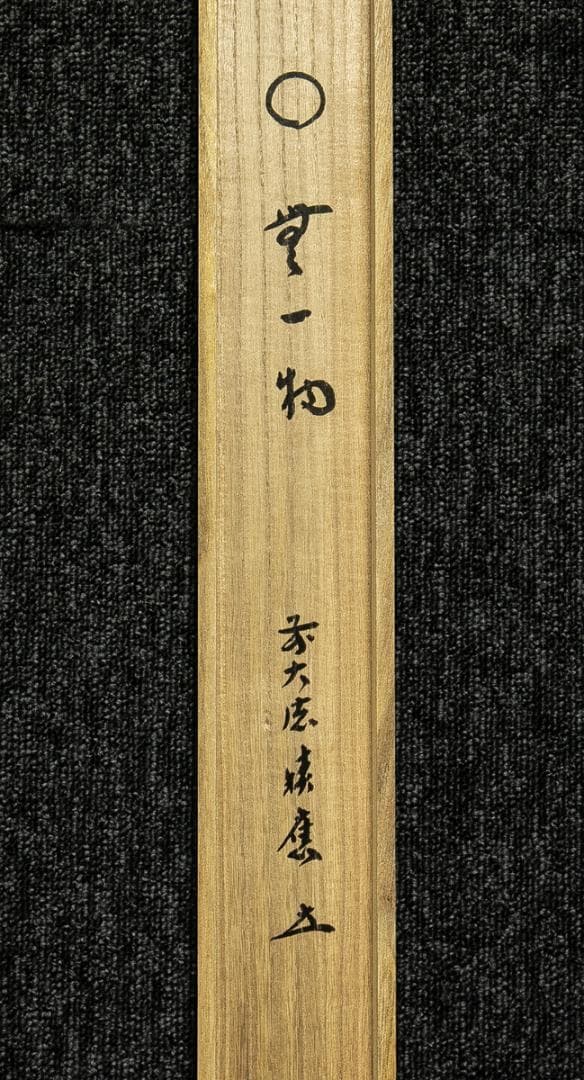 〇 無一物
前大徳積應